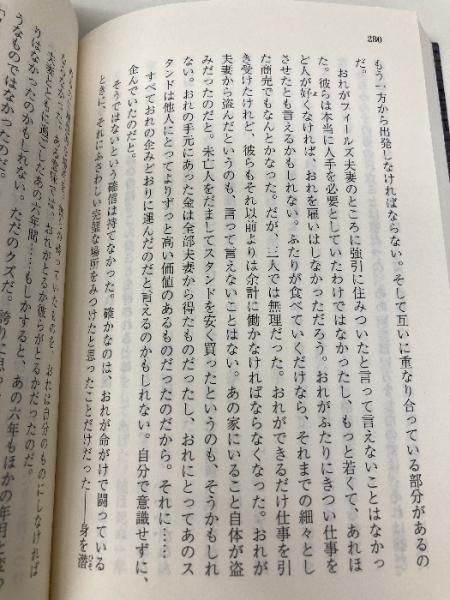 286
もう一方から出発しなければならない。そして互いに重なり合っている部分があるの
だ。
おれがフィールズ夫妻のところに強引に住みついたと言って言えないことはなかっ
た。彼らは本当に人手を必要としていたわけではなかったし、もっと若くて、あれほ
ど人が好くなければ、おれを雇いはしなかっただろう。おれがふたりにきつい仕事を
させたとも言えるかもしれない。ふたりが食べていくだけなら、それまでの細々とし
た商売でもなんとかなった。だが、三人では無理だった。おれができるだけ仕事を
き受けたけれど、彼らもそれ以前よりは余計に働かなければならなくなった。おれが
夫妻から盗んだというのも、言って言えないことはない。あの家にいること自体が盗
みだったのだ。未亡人をだましてスタンドを安く買ったというのも、そうかもしれ
ない。おれの手元にあった金は全部夫妻から得たものだったし、おれにとってあのス
タンドは他人にとってよりずっと高い価値のあるものだったのだから。それに……
すべておれの企みどおりに運んだのだと言えるのかもしれない。自分で意識せずに、
企んでいたのだと。
そうではないという確信は持てなかった。確かなのは、おれが命がけで闘っている
ときに、それにふさわしい完璧な場所をみつけたと思ったことだけだった――身を潜
おれは自分のものにしなければ
おれがとるか彼らがとるかだったのだ。
夫妻とともに過ごしたあの六年間……もしかすると、あの六年もほかの年月と
りはなかったのかもしれない。ただのクズだ。誇りに思
うなものではなかったのだ。